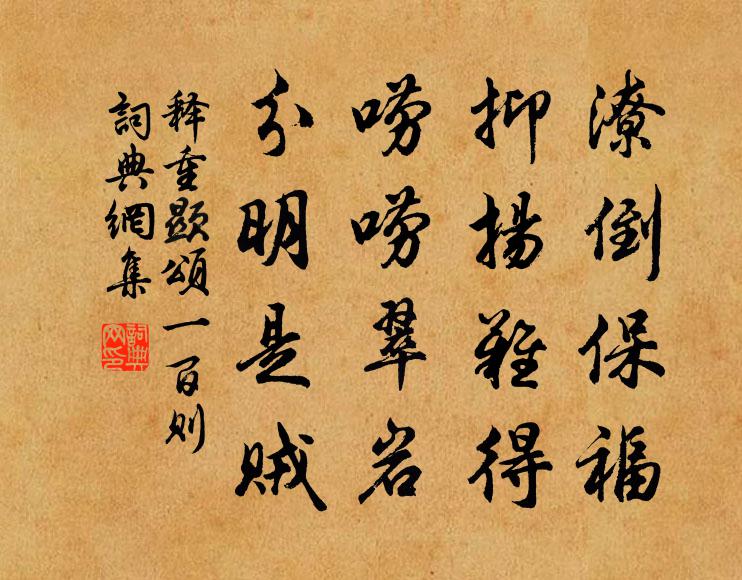 潦倒保福
抑揚難得
嘮嘮翠岩
分明是賊
释重顯頌一百则
詞典網集
詞典网印